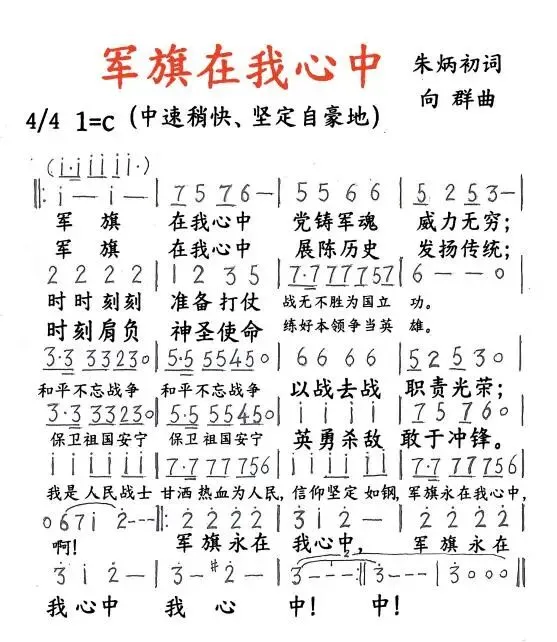 军旗在我心中
朱炳初词
向 群曲
4/4 1=C (中速稍快、坚定自豪地)
(i·i i i i i·)
‖: i — i — | 7 5 7 6 — | 5 5 6 6 | 5 2 5 3 — |
军 旗 在我心中 党铸军魂 威力无穷;
军 旗 在我心中 展陈历史 发扬传统;
2 2 2 2 | 1 2 3 5 | 7·7 7 7 7 5 7 | 6 — — 0 |
时时刻刻 准备打仗 战无不胜为国立 功。
时刻肩负 神圣使命 练好本领争当英 雄。
3·3 3 3 2 3 0 | 5·5 5 5 4 5 0 | 6 6 6 6 | 5 2 5 3 0 |
和平不忘战争 和平不忘战争 以战去战 职责光荣;
3·3 3 3 2 3 0 | 5·5 5 5 4 5 0 | i i i i | 7 5 7 6 0 |
保卫祖国安宁 保卫祖国安宁 英勇杀敌 敢于冲锋。
i i i i i i | 7·7 7 7 7 5 6 | i i i i i i | 7·7 7 7 7 5 6 |
我是人民战士 甘洒热血为人民, 信仰坚定如钢, 军旗永在我心中,
0 6 7 i 2 - - - ‖: 2 2 2 2 | 3 i 2 — | 2 2 2 2 |
啊! 军旗永在 我心中, 军旗永在
3 i 2 — | 3 — #2 — | 3 - - - :‖ 3 - - - | 3 0 0 0 ‖
我心中 我 心 中! 中!